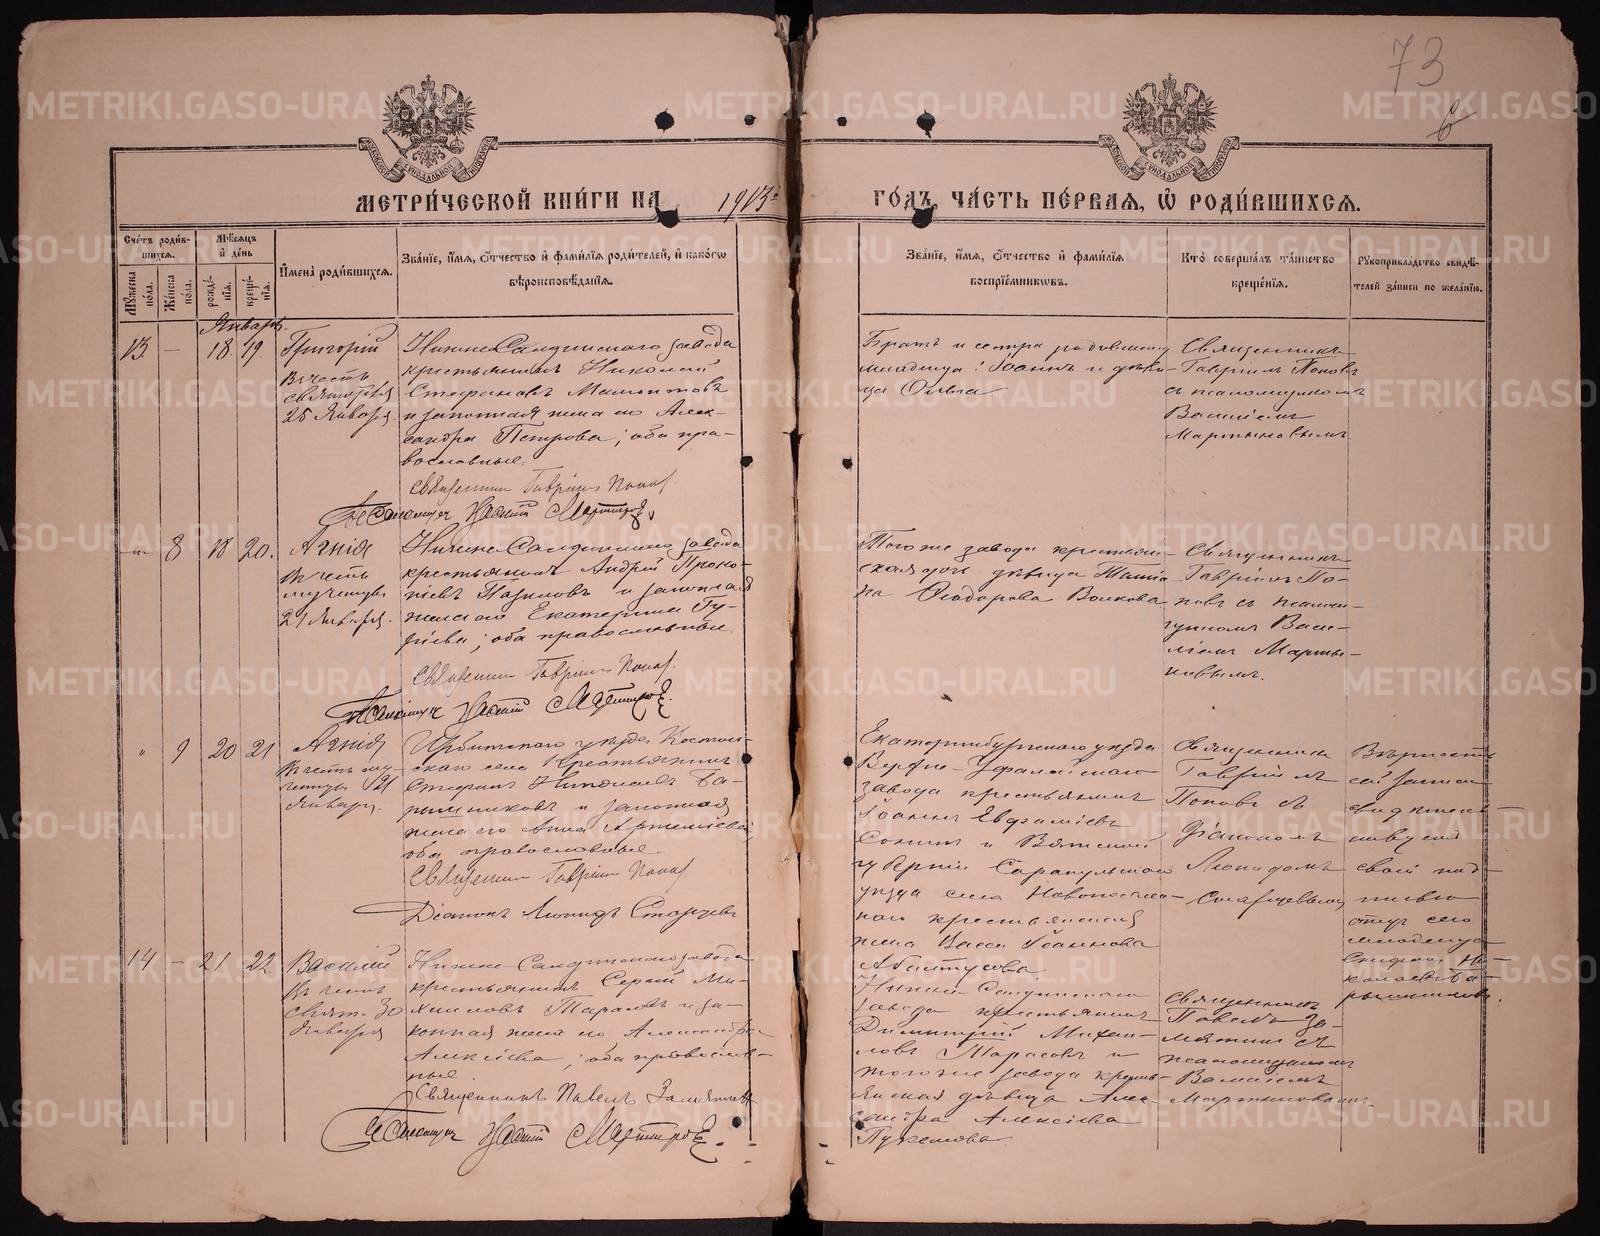 73
6
МЕТРИ́ЧЕСКОЙ КНИ́ГИ НА 1913 ГО́ДЪ, ЧА́СТЬ ПЕ́РВАЯ, Ѽ РОДИ́ВШИХСѦ.
Сче́тъ роди́вшихся.
Мѣ́сяцъ и де́нь
Мꙋ́жеска по́ла.
Же́нска по́ла.
рожде́нїѧ.
креще́нїѧ.
И҆мена̀ роди́вшихся.
Зва́нїе, и҆́мѧ, ѻ҆́тчество и҆ фами́лїѧ роди́телей, и҆ како́гѡ
вѣроисповѣ́данїѧ.
Зва́нїе, и҆́мѧ, ѻ҆́тчество и҆ фами́лїѧ
воспрїе́мникѡвъ.
Кто̀ соверша́лъ та́инство
креще́нїѧ.
Рꙋкоприкла́дство свидѣ́-
телей за́писи по жела́нїю.
Январь.
13 — 18 19
Григорій
В честь
святаго
25 Января
Нижне Салдинскаго завода
крестьянинъ Николай
Стефановъ Мамонтовъ
и законная жена его Алек-
сандра Петрова; оба пра-
вославные.
Священник Гавріил Попов
Псаломщик Василій Мартынов
Братъ и сестра родившаго
младенца: Іоаннъ и дѣви-
ца Ольга
Священникъ
Гавріилъ Поповъ
съ псаломщикомъ
Василіемъ
Мартыновымъ
" 8 18 20.
Агнія
В честь
мученицы
21 Января.
Нижне Салдинскаго завода
крестьянинъ Андрей Проко-
піевъ и законная
жена его Екатерина Гу-
ріева; оба православные
Священник Гавріил Попов.
Псаломщик Василій Мартынов.
Того же завода крестьян-
ская дочь дѣвица Татіа-
на Ѳеодорова Волкова
Священникъ
Гавріилъ По-
повъ съ псалом-
щикомъ Васи-
ліемъ Марты-
новымъ.
" 9 20 21
Агнія
В честь му-
ченицы 21
Января.
Ирбитскаго уѣзда
скаго села крестьянинъ
Стефанъ Николаевъ Ба-
рышниковъ и законная
жена его Анна Артеміева,
оба православные.
Священник Гавріил Попов
Діаконъ Леонидъ Старцевъ
Екатеринбургскаго уѣзда
Верхне-Уфалейскаго
завода крестьянинъ
Іоаннъ Евфиміевъ
и Вятской
губерніи Сарапульскаго
уѣзда села
крестьянская
жена Васса Іоаннова
Священникъ
Гавріилъ
Поповъ съ
Діакономъ
Леонидомъ
Старцевымъ
Вѣрность
сей записи
свидѣтель-
ствую
своей под-
писью
отец сего
младенца
Стефан Ни-
колаев Ба-
рышников.
14 — 21 22
Василій
В честь
свят. 30
Января
Нижне Салдинскаго завода
крестьянинъ Сергій Ми-
хаиловъ Тарасовъ и за-
конная жена его Александра
Алексіева; оба православ-
ные
Священникъ Павелъ Замятин
Псаломщик Василій Мартынов
Нижне-Салдинскаго
завода крестьянинъ
Димитрій Михаи-
ловъ Тарасовъ и
того же завода кресть-
янская дѣвица Алек-
сандра Алексіева
Священникъ
Павелъ За-
мятинъ съ
псаломщикомъ
Василіемъ
Мартыновымъ